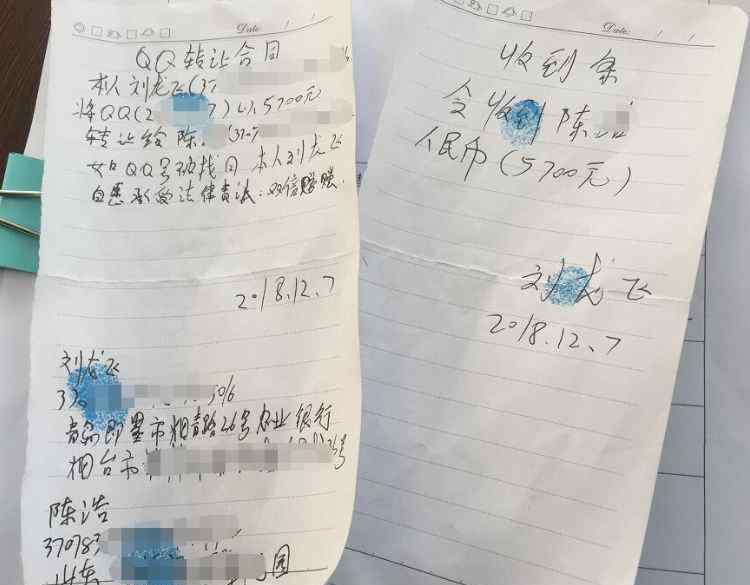 Date / /
QQ转让合同
本人刘龙飞(37 %
将QQ(2 7)以5700元
转让给陈 (370
如QQ号被找回 本人刘龙飞
自愿承受法律责法.双倍赔赔.
2018.12.7
刘龙飞
370 306
青岛即墨市烟青路26号农业银行
烟台市 号
陈浩
370783
山东 园
Date / /
收到条
今收到陈
人民币(5700元)
刘龙飞
2018.12.7